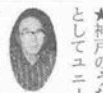 ★神戸のそ
としてユニー